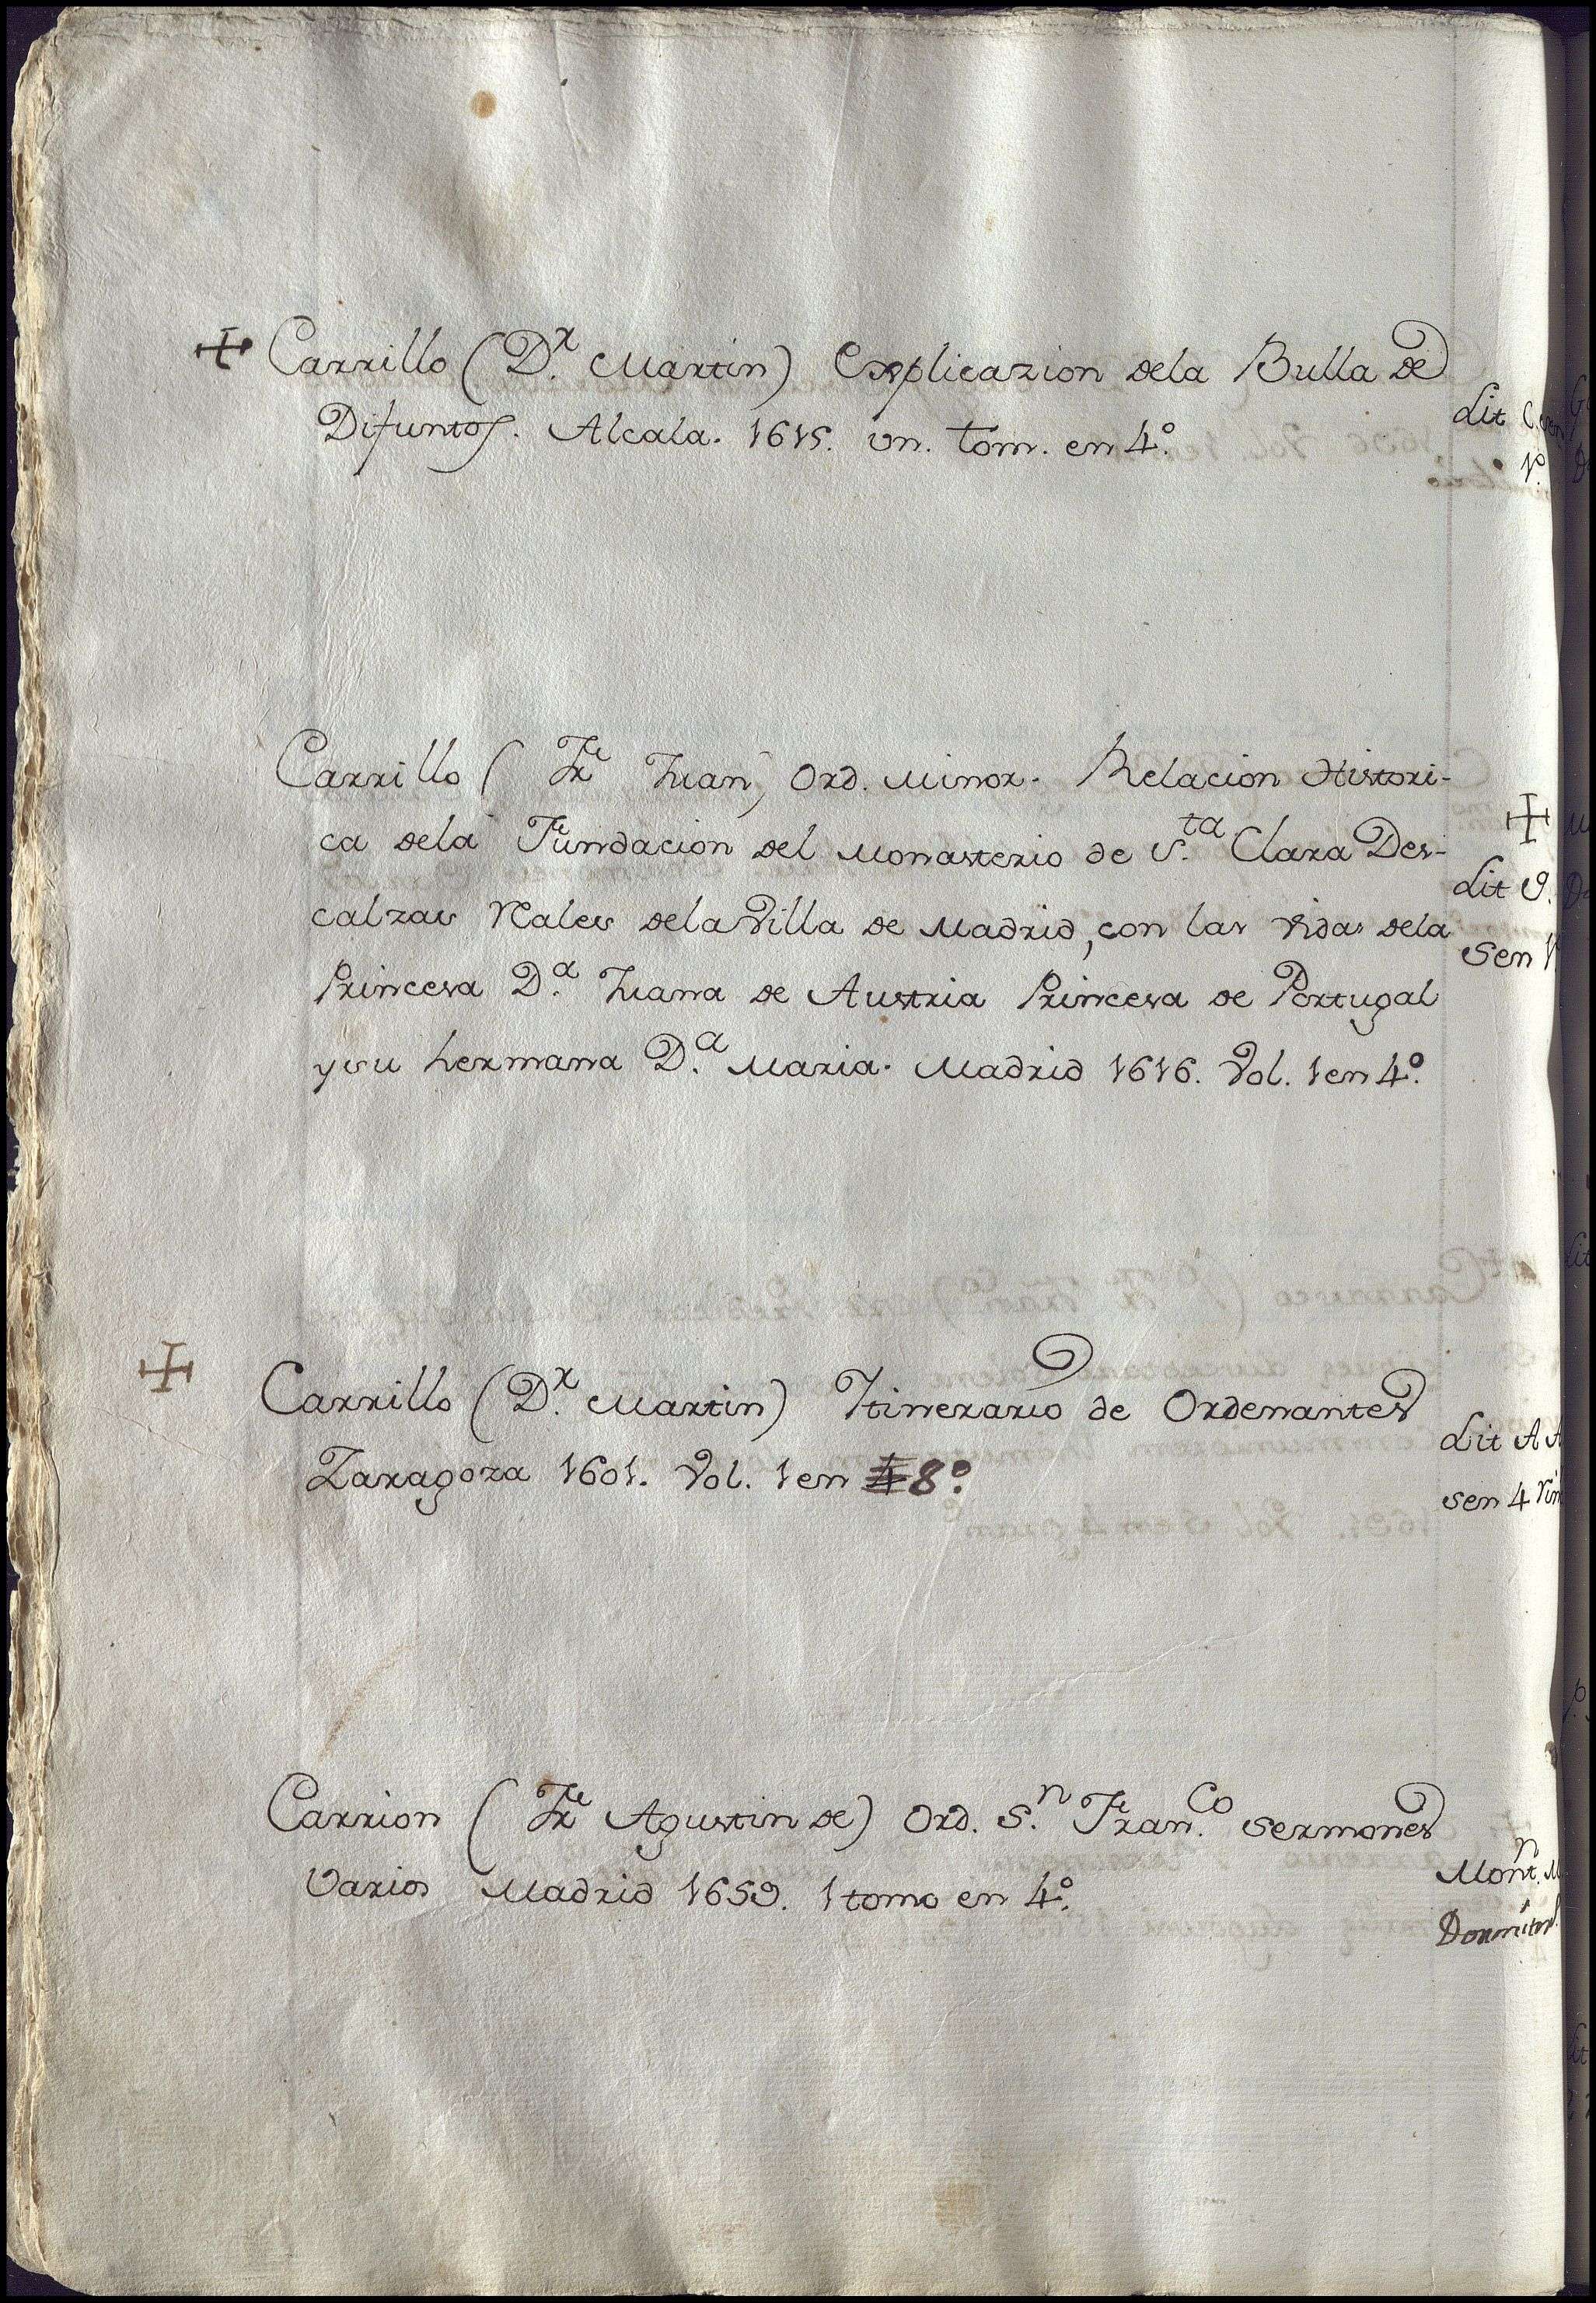 ✠ Carrillo (D.r Martin) Explicazion dela Bulla de
Difuntos. Alcala. 1615. vn. tom. en 4.º
Lit C. en
Carrillo (Fr Juan) Ord. Minor. Relacion Histori-
ca dela Fundacion del Monasterio de S.ta Clara Des-
calzas Rales dela Villa de Madrid, con las Vidas dela
Princesa D.a Juana de Austria Princesa de Portugal
y su hermana D.a Maria. Madrid 1616. Vol. 1 en 4.º
✠
Lit 9.
Sen
✠ Carrillo (D.r Martin) Itinerario de Ordenantes
Zaragoza 1601. Vol. 1 en 4 8.º
Lit A A
sen 4
Carrion (Fr Agustin de) Ord. S.n Fran.co Sermones
Varios Madrid 1659. 1 tomo en 4.º
Mont.n M
Dormitor.